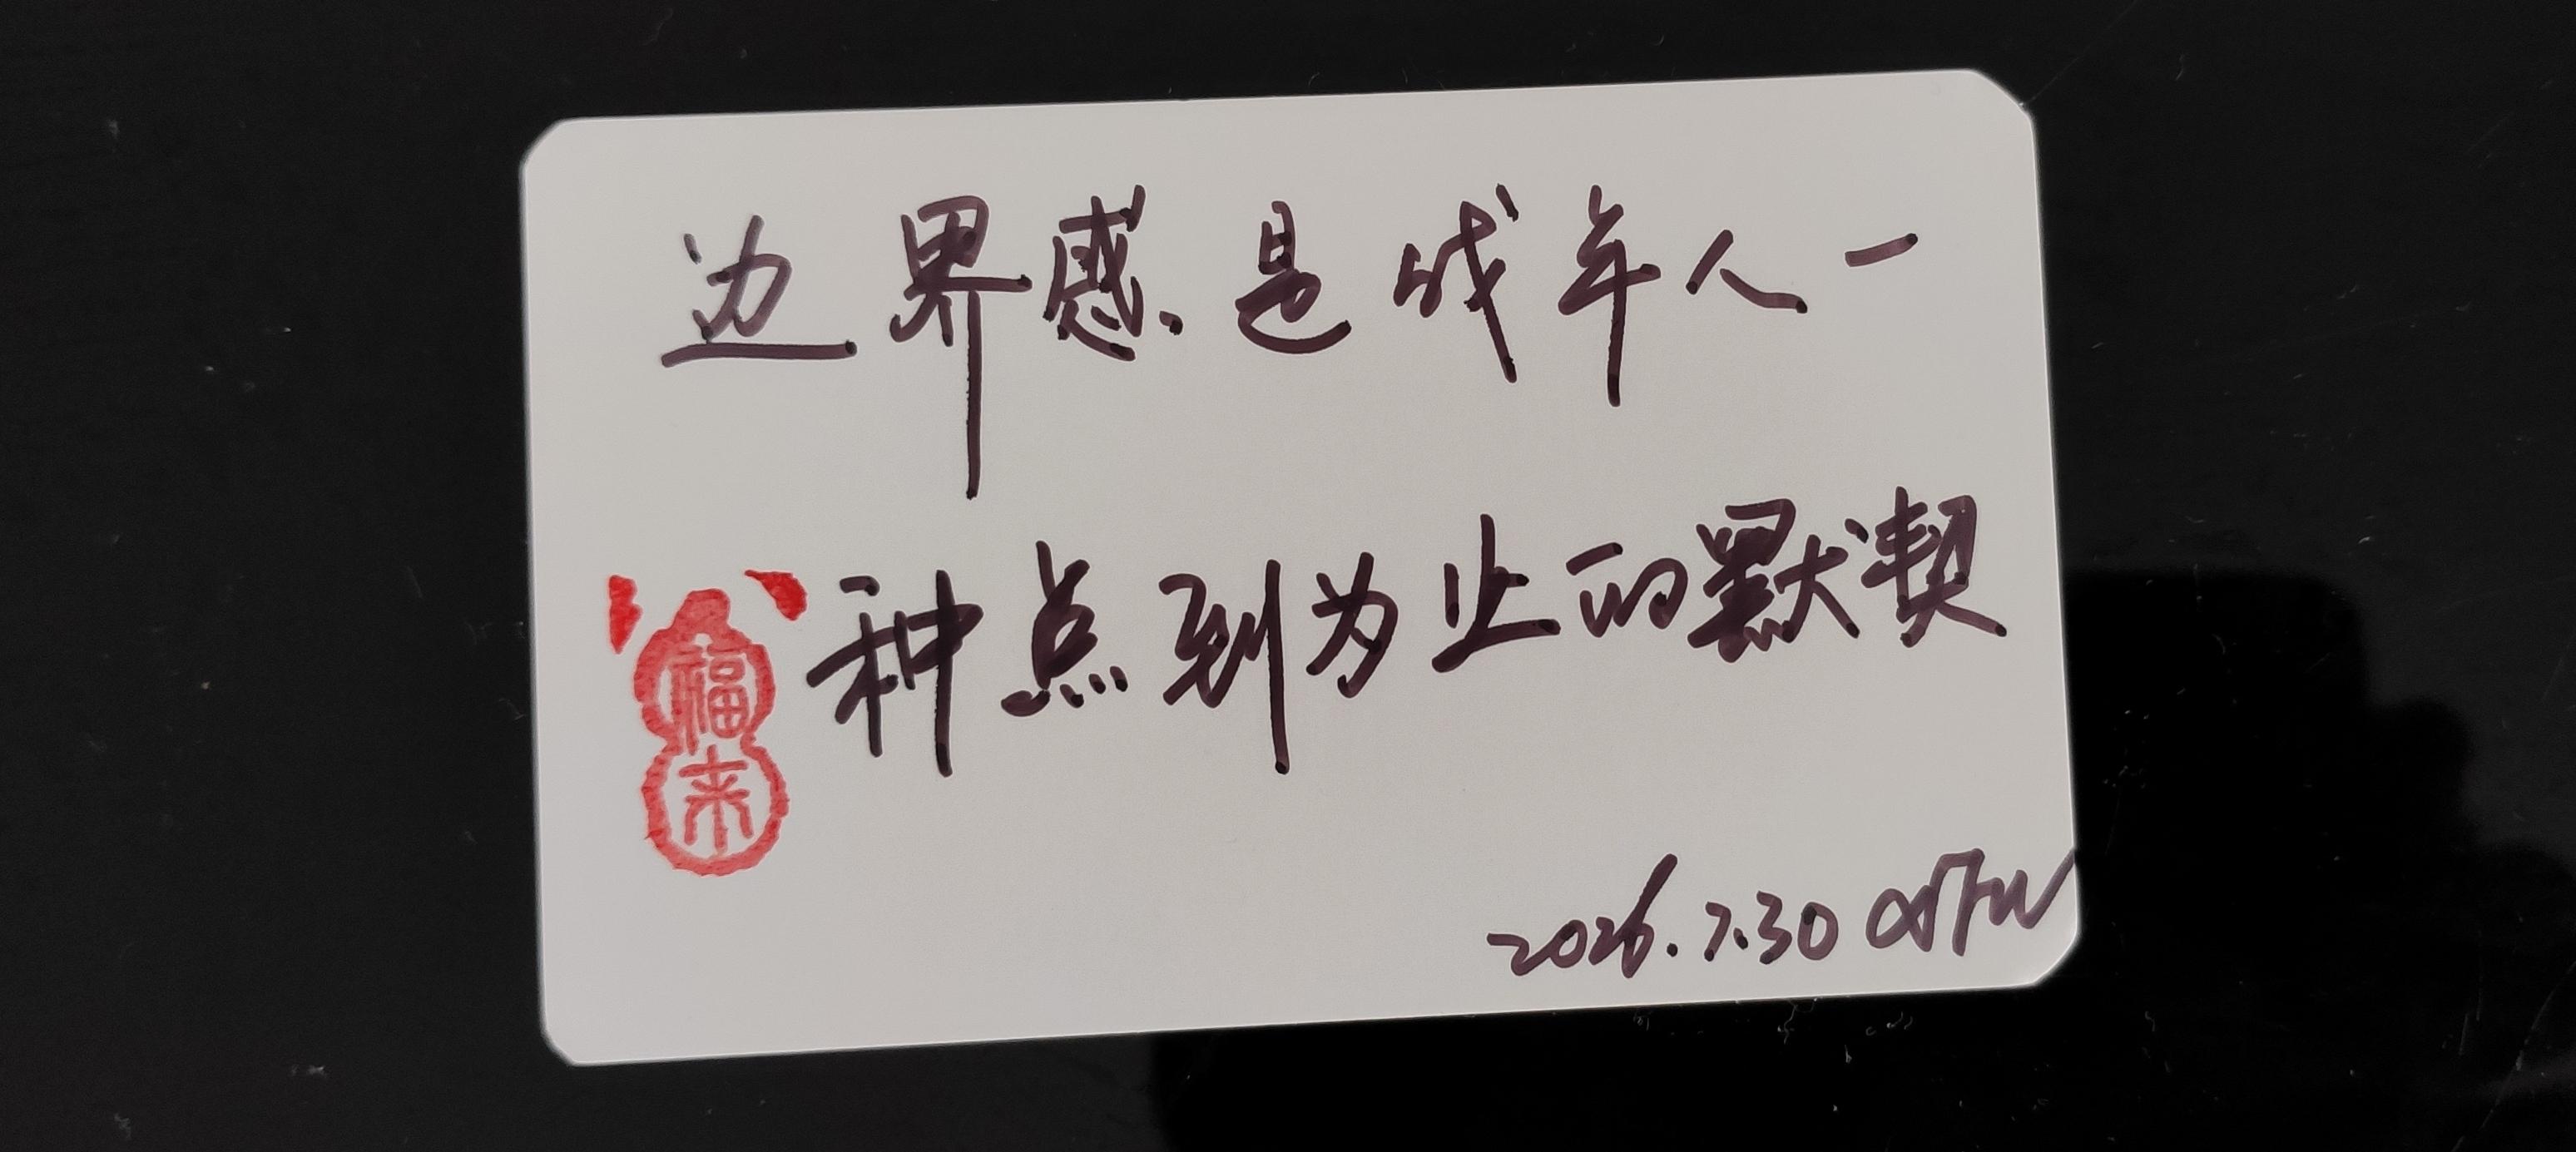 边界感是成年人一
种点到为止的默契
福来
2026.7.30